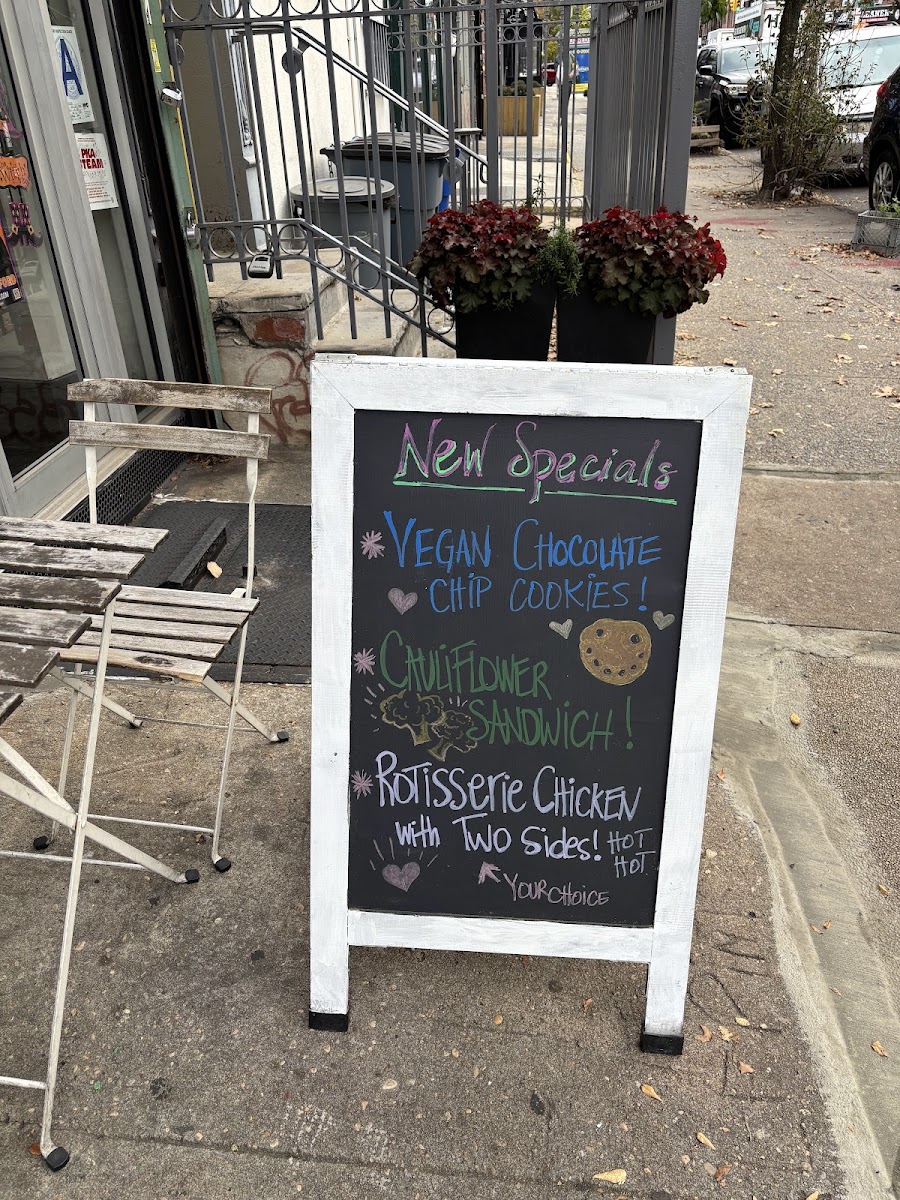 A
New Specials
VEGAN CHOCOLATE
CHIP COOKIES!
CAULIFLOWER
SANDWICH!
ROTISSERIE CHICKEN
with Two Sides! HOT
HOT
YOUR CHOICE